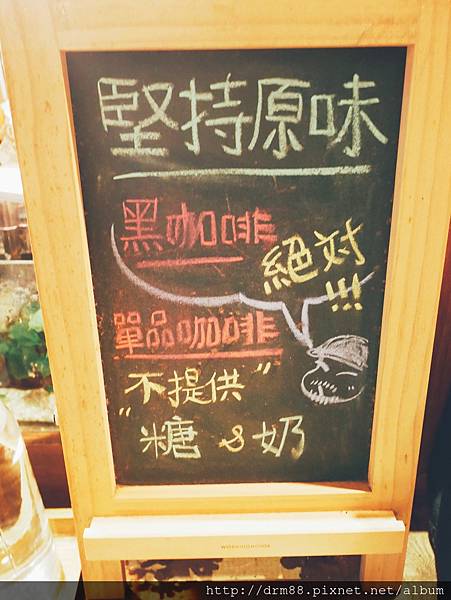 堅持原味
黑咖啡
絕対
!!!
單品咖啡
不提供"
"糖 & 奶
http://drm88.pixnet.net/album